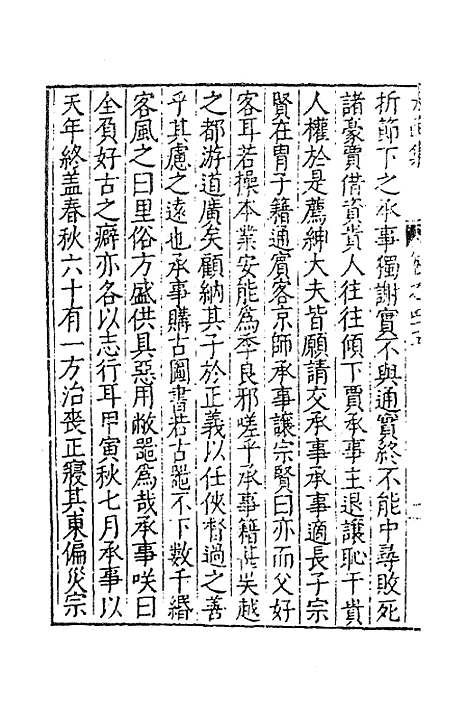 折節下之承事獨謝實不與通實終不能中尋敗死
諸豪賈借資貴人往往傾下賈承事主退讓恥干貴
人權於是薦紳大夫皆願請交承事承事適長子宗
賢在胄子籍通賓客京師承事讓宗賢曰亦而父好
客耳若操本業安能為季良邪嗟乎承事籍甚吳越
之都游道廣矣顧納其子於正義以任俠督過之善
乎其慮之遠也承事購古圖書若古器不下數千緡
客風之曰里俗方盛供具惡用敝器為哉承事咲曰
全負好古之癖亦各以志行耳甲寅秋七月承事以
天年終盖春秋六十有一方治喪正寢其東偏災宗